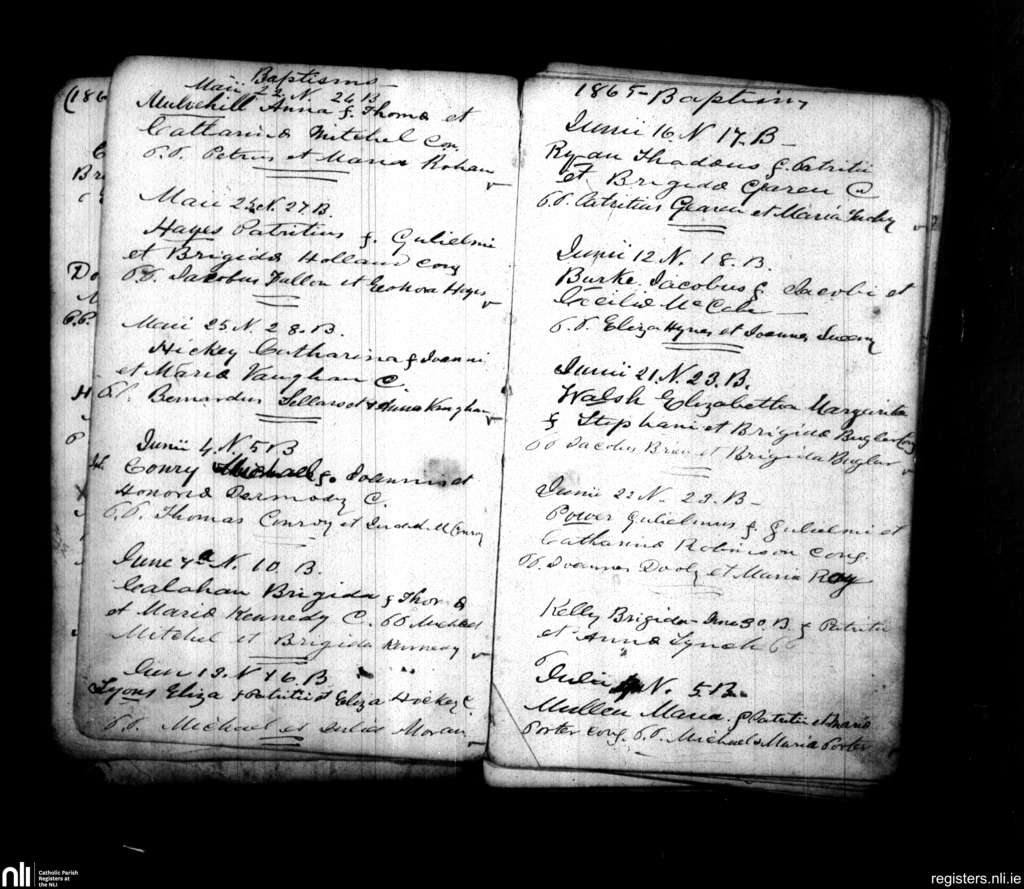 Baptisms
Maii 22 N. 24 B
Mulvehill Anna f. Thomæ et
Catharinæ Mitchel Con.
P.P. Petrus et Maria Rohan
Maii 25 N. 27 B.
Hayes Patritius f. Gulielmi
et Brigidæ Holland Conj
P.P. Jacobus Fallon et Honora Hayes
Maii 25 N. 28. B.
Hickey Catharina f Joanni
et Mariæ Vaughan C.
P.P. Bernardus et Anna Vaughan
Junii 4. N. 5 B
Conry Michael f. Joannis et
Honoræ Dermody C.
P.P. Thomas Conroy et Conroy
June 4 N. 10 B.
Calahan Brigida f Thomæ
et Mariæ Kennedy C. PP Michael
Mitchel et Brigida Kennedy
Jun 13. N 16. B
Lyons Eliza f Patritii et Eliza Hickey C.
P.P. Michael et Julia Moran
(186
Br
Do
P.P.
H
P
1865 - Baptism
Junii 16 N 17. B -
Ryan Thadæus f. Patritii
et Brigidæ Gearen C
P.P. Patritius Gearen et Maria
Junii 12 N. 18. B.
Burke Jacobus f. Jacobi et
Cæciliæ McCabe
P.P. Eliza Hynes et Joannes
Junii 21. N. 23. B.
Walsh Elizabetha Margarita
f Stephani et Brigidæ Buglar Conj
PP Jacobus et Brigida Buglar
Junii 22 N. 23. B -
Power Gulielmus f. Gulielmi et
Catharinæ Robinson Conj.
PP. Joannes Dooly et Maria Roy
Kelly Brigida - June 30 B. f Patritii
et Anna Lynch
Julii N. 5 B.
Mullen Maria. f Patritii et Maria
Porter Conj. P.P. Michael & Maria Porter
nli
Catholic Parish
Registers at
the NLI
registers.nli.ie